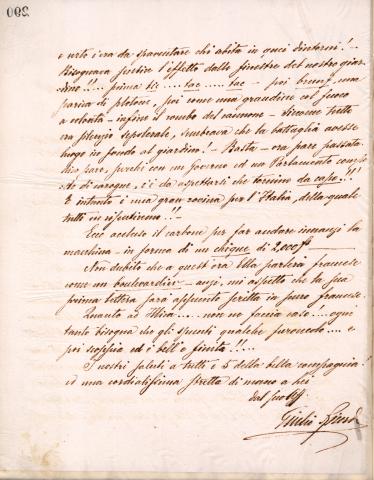 390
e urto i era da spaventare chi abita in quei dintorni! -
Bisognava sentire l'effetto dalle finestre del nostro giar=
dino!!.. prima tic .... tac .... tac - poi brum, una
scarica di plotone, poi come una grandine col fuoco
a volontà - infine il rombo del cannone - siccome tutto
era silenzio sepolcrale, sembrava che la battaglia avesse
luogo in fondo al giardino! - Basta - ora pare passata
dico pare, perchè con un Governo ed un Parlamento compo
sto di carogne, c'è da aspettarsi che tornino da capo!!!
E intanto è una gran rovina per l'Italia, della quale
tutti ne risentiremo!..
Ecco accluso il carbone per far andare innanzi la
macchina - in forma di un chèque di 2,000 fs
Non dubito che a quest'ora Ella parlerà francese
come un boulevardier - anzi, mi aspetto che la sua
prima lettera sarà appunto scritta in puro francese.
Quanto ad Illica .... non ne faccia caso .... ogni
tanto bisogna che gli spunti qualche foruncolo .... e
poi scoppia ed è bell'e finita!!..
I nostri saluti a tutti e 5 della bella compagnia!
ed una cordialissima stretta di mano a Lei
dal suo aff
Giulio Ricordi